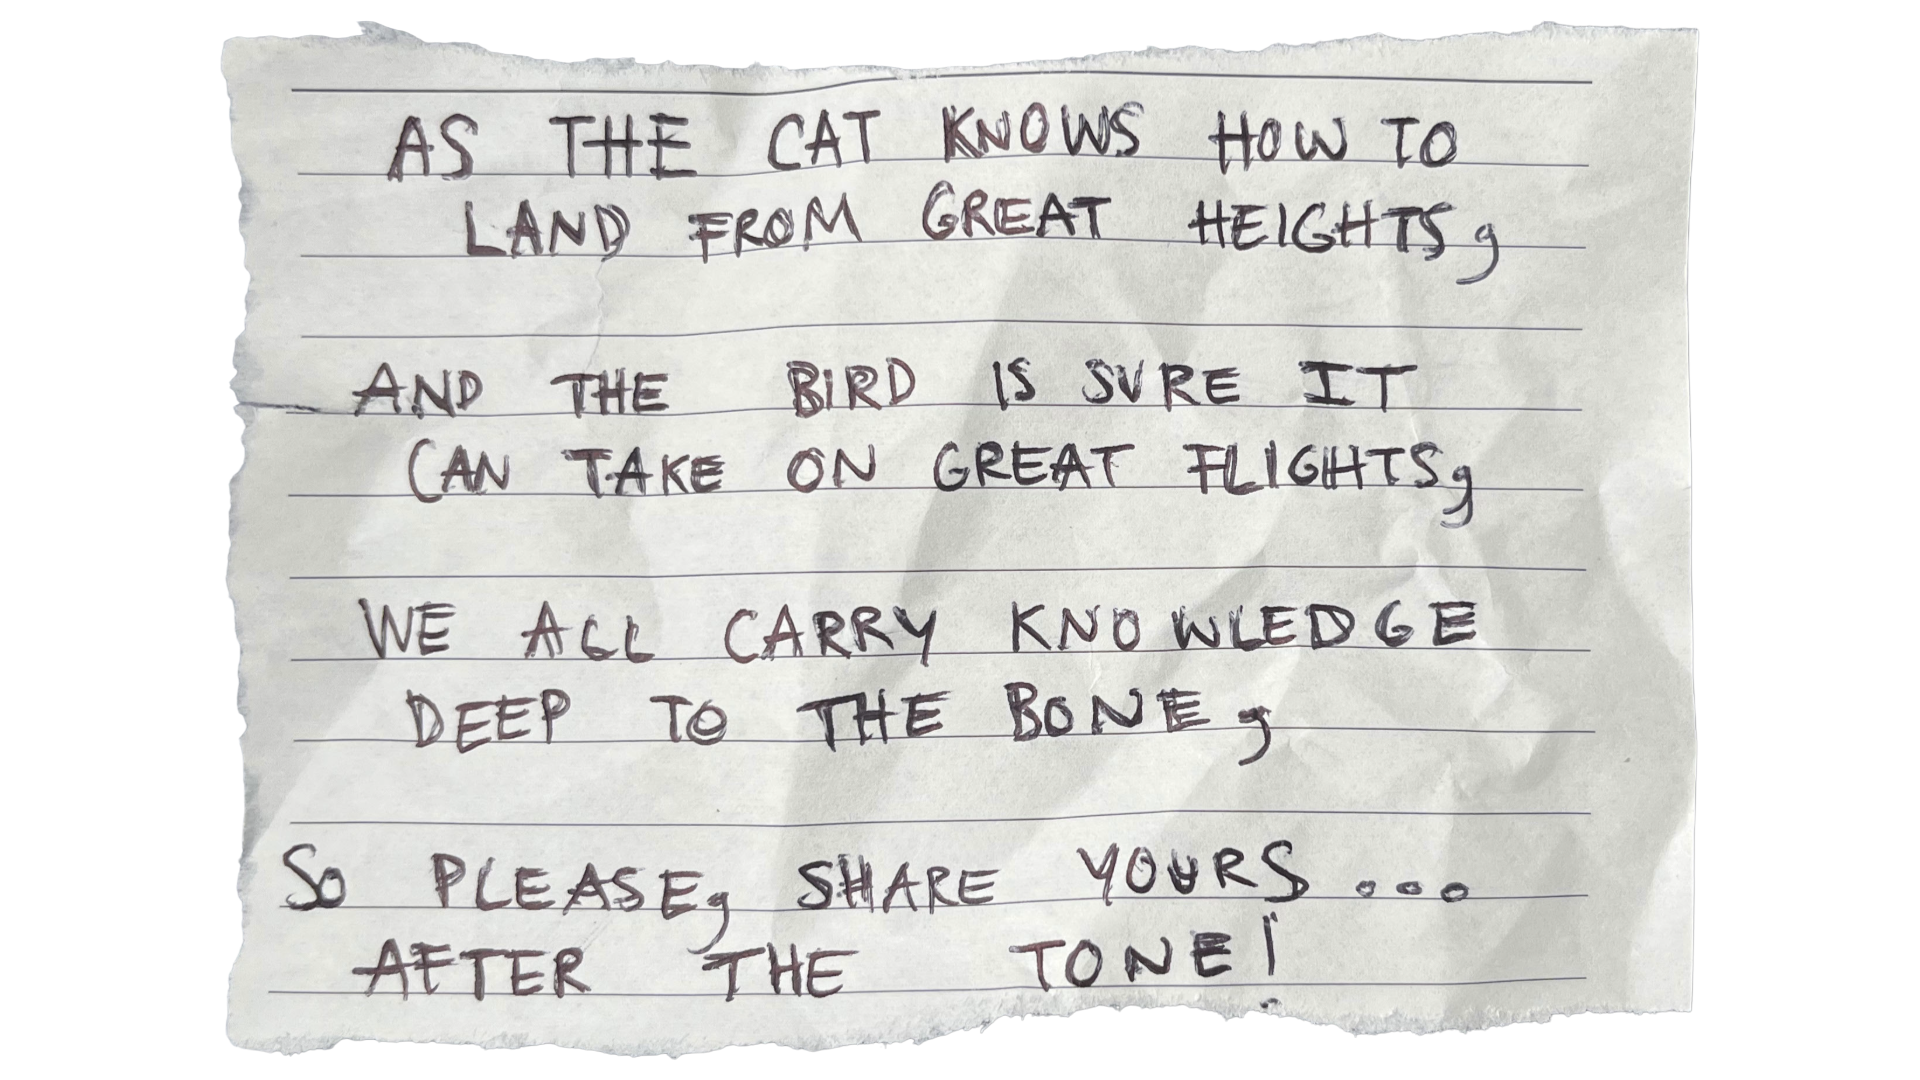 AS THE CAT KNOWS HOW TO
LAND FROM GREAT HEIGHTS,
AND THE BIRD IS SURE IT
CAN TAKE ON GREAT FLIGHTS,
WE ALL CARRY KNOWLEDGE
DEEP TO THE BONE,
SO PLEASE, SHARE YOURS...
AFTER THE TONE!